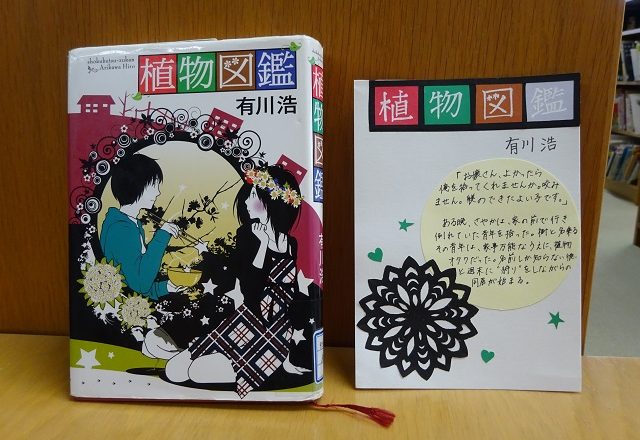 shokubutsu-zukan
Arikawa Hiro
植物図鑑
有川浩
植物図鑑
有川浩
植物図鑑
有川 浩
「お嬢さん、よかったら
俺を拾ってくれませんか。咬み
ません。躾のできたよい子です。」
ある晩、さやかは、家の前で行き
倒れていた青年を拾った。樹と名乗る
その青年は、家事万能なうえに、植物
オタクだった。名前しか知らない樹
と週末に"狩り"をしながらの
同居が始まる。